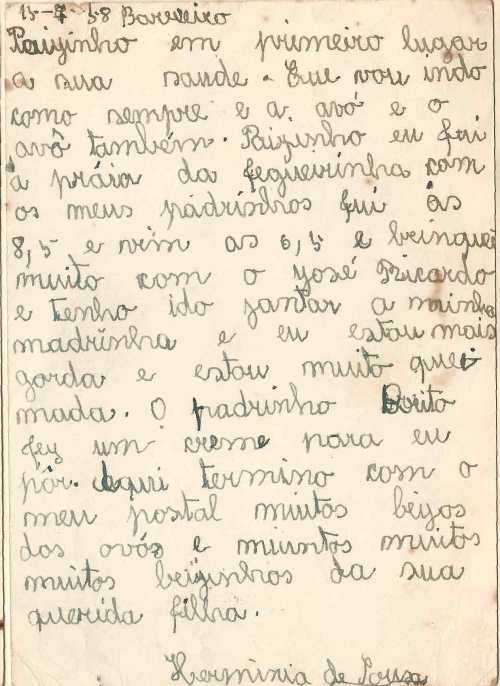 15-7-58 Barreiro
Paizinho em primeiro lugar
a sua saude. Eue vou indo
como sempre e a avó e o
avô também. Paizinho eu fui
á práia da fegueirinha com
os meus padrinhos fui ás
8,5 e vim as 6,5 e brinquei
muito com o José Ricardo
e tenho ido jantar a minha
madrinha e eu estou mais
gorda e estou muito quei
mada. O padrinho Borito
fez um creme para eu
pôr. Aqui termino com o
meu postal muitos beijos
dos avós e miuntos muitos
muitos beijinhos da sua
querida filha.
Herminia de Sousa